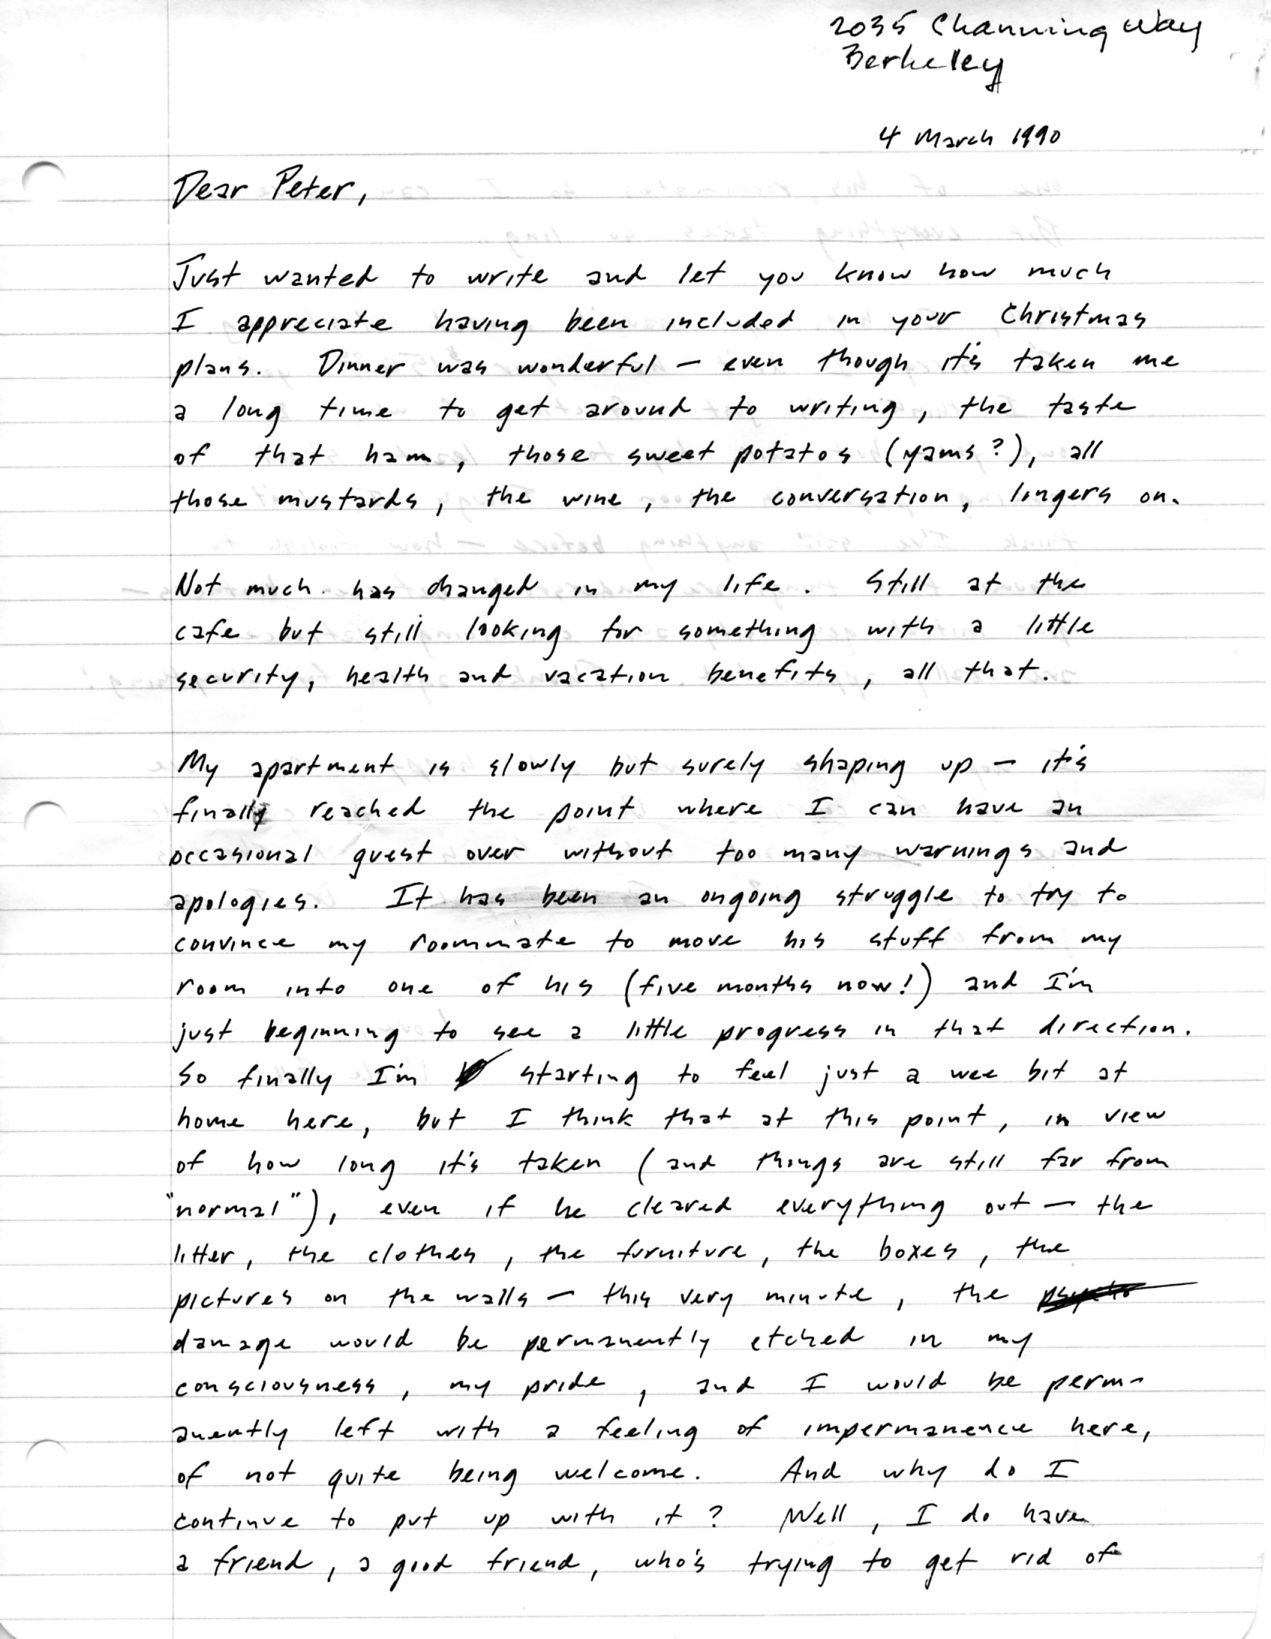 2035 Channing Way
Berkeley
4 March 1990
Dear Peter,
Just wanted to write and let you know how much
I appreciate having been included in your Christmas
plans. Dinner was wonderful — even though it's taken me
a long time to get around to writing, the taste
of that ham, those sweet potatos (yams?), all
those mustards, the wine, the conversation, lingers on.
Not much has changed in my life. Still at the
cafe but still looking for something with a little
security, health and vacation benefits, all that.
My apartment is slowly but surely shaping up — it's
finally reached the point where I can have an
occasional guest over without too many warnings and
apologies. It has been an ongoing struggle to try to
convince my roommate to move his stuff from my
room into one of his (five months now!) and I'm
just beginning to see a little progress in that direction.
So finally I'm starting to feel just a wee bit at
home here, but I think that at this point, in view
of how long it's taken (and things are still far from
"normal"), even if he cleared everything out — the
litter, the clothes, the furniture, the boxes, the
pictures on the walls — this very minute, the
damage would be permanently etched in my
consciousness, my pride, and I would be perm-
anently left with a feeling of impermanence here,
of not quite being welcome. And why do I
continue to put up with it? Well, I do have
a friend, a good friend, who's trying to get rid of